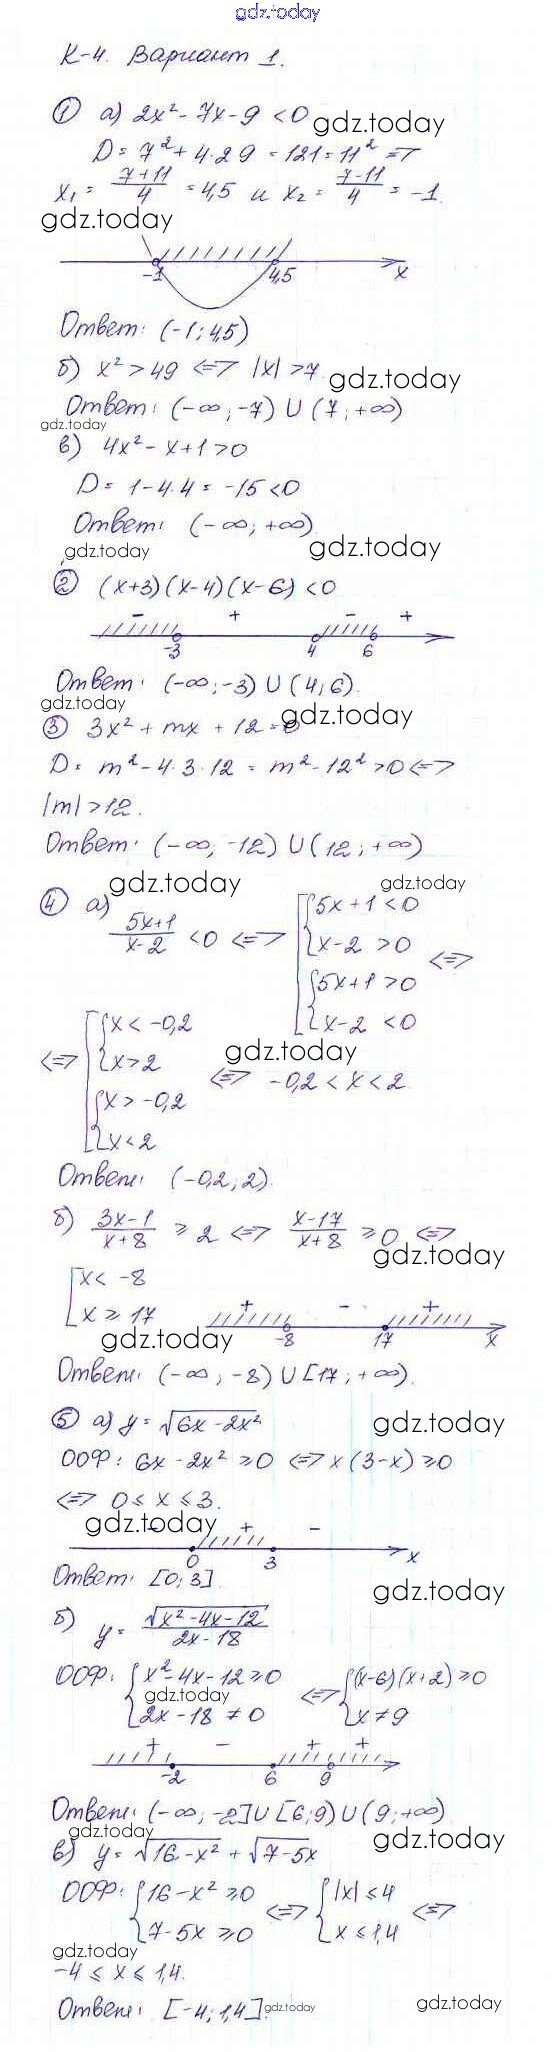 gdz.today
К-4. Вариант 1.
① а) 2x² - 7x - 9 < 0 gdz.today
D = 7² + 4·2·9 = 121 = 11² =>
x₁ = (7+11)/4 = 4,5 и x₂ = (7-11)/4 = -1.
gdz.today
-1 4,5 x
Ответ: (-1; 4,5)
б) x² > 49 <=> |x| > 7 gdz.today
Ответ: (-∞; -7) ∪ (7; +∞)
gdz.today
в) 4x² - x + 1 > 0
D = 1 - 4·4 = -15 < 0
Ответ: (-∞; +∞)
gdz.today gdz.today
② (x+3)(x-4)(x-6) < 0
- + - +
-3 4 6
Ответ: (-∞; -3) ∪ (4; 6).
gdz.today gdz.today
③ 3x² + mx + 12 = 0
D = m² - 4·3·12 = m² - 12² > 0 <=>
|m| > 12.
Ответ: (-∞; -12) ∪ (12; +∞)
gdz.today gdz.today
④ а) (5x+1)/(x-2) < 0 <=> [ { 5x+1 < 0
x-2 > 0
{ 5x+1 > 0 <=>
x-2 < 0
<=> [ { x < -0,2
x > 2
{ x > -0,2
x < 2 <=> -0,2 < x < 2.
gdz.today
Ответ: (-0,2; 2).
б) (3x-1)/(x+8) ≥ 2 <=> (x-17)/(x+8) ≥ 0 <=>
gdz.today
[ x < -8
x ≥ 17
+ - +
-8 17 x
gdz.today
Ответ: (-∞; -8) ∪ [17; +∞).
⑤ а) y = √(6x - 2x²) gdz.today
ООФ: 6x - 2x² ≥ 0 <=> x(3-x) ≥ 0
<=> 0 ≤ x ≤ 3.
gdz.today
- + -
0 3 x
Ответ: [0; 3] gdz.today
б) y = √(x² - 4x - 12)/(2x - 18)
ООФ: { x² - 4x - 12 ≥ 0
2x - 18 ≠ 0 <=> { (x-6)(x+2) ≥ 0
x ≠ 9
gdz.today
+ - + +
-2 6 9
Ответ: (-∞; -2] ∪ [6; 9) ∪ (9; +∞)
gdz.today gdz.today
в) y = √(16 - x²) + √(7 - 5x)
ООФ: { 16 - x² ≥ 0
7 - 5x ≥ 0 <=> { |x| ≤ 4
x ≤ 1,4 <=>
gdz.today
-4 ≤ x ≤ 1,4.
Ответ: [-4; 1,4]. gdz.today gdz.today